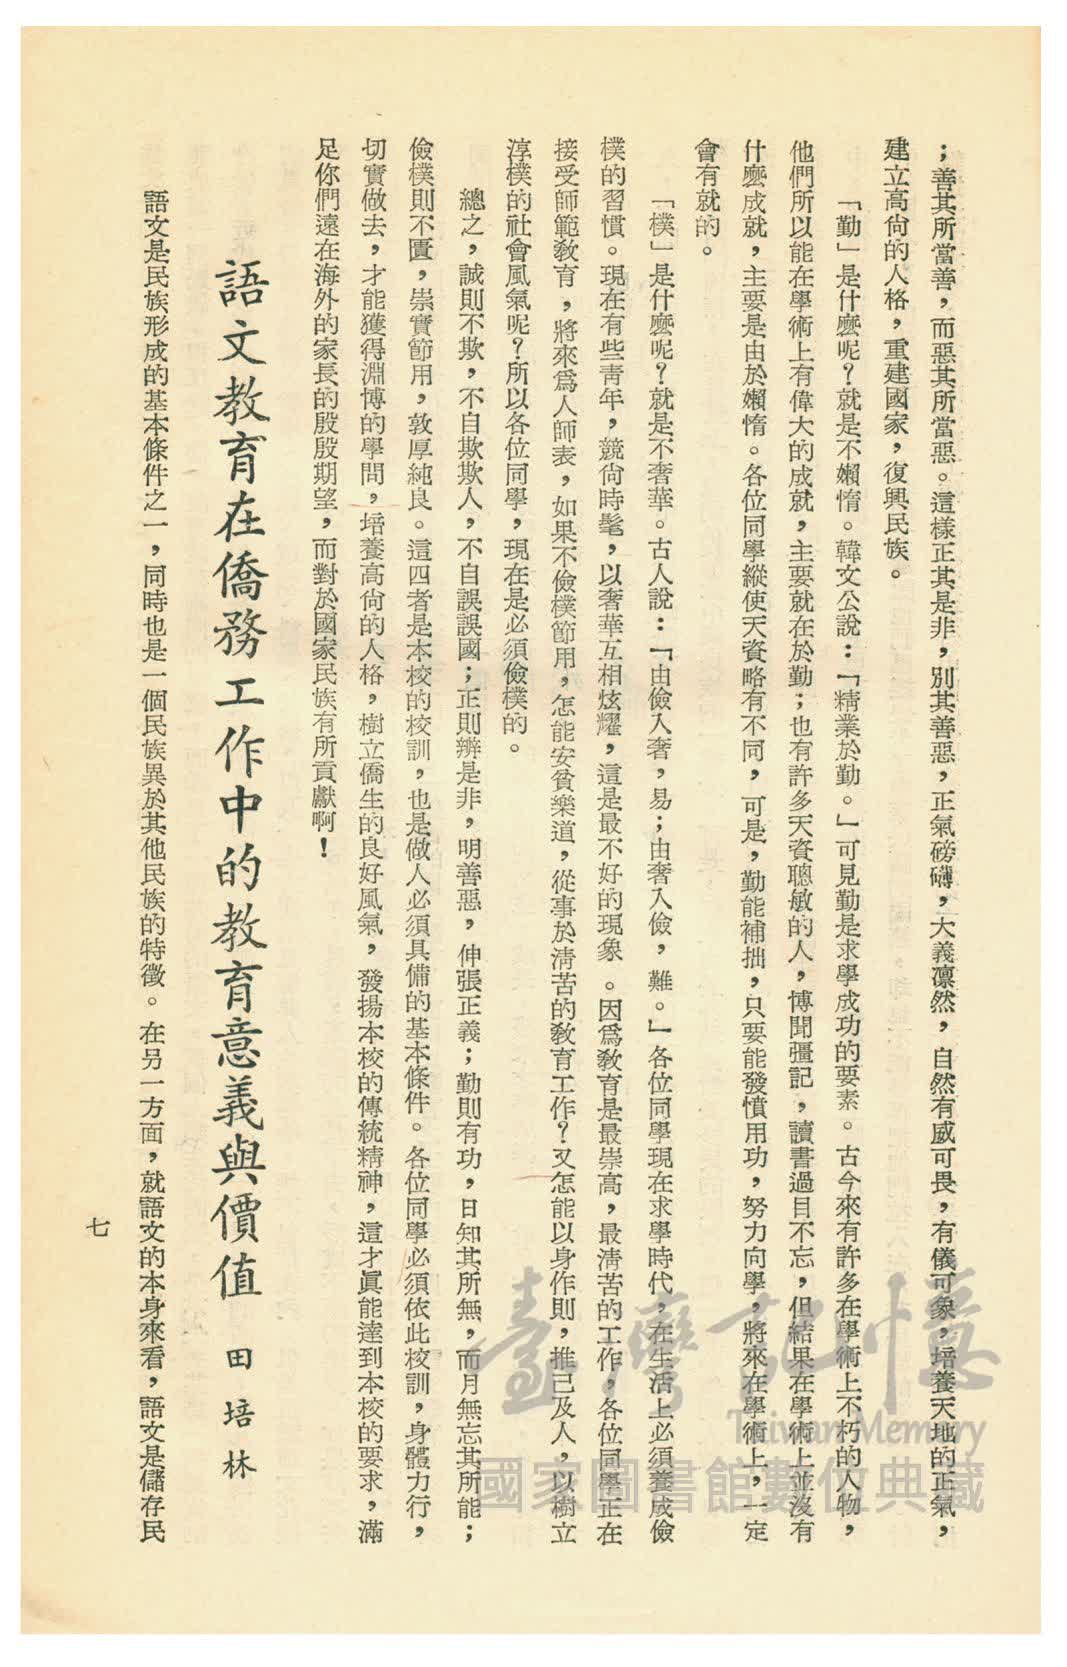 ；善其所當善，而惡其所當惡。這樣正其是非，別其善惡，正氣磅礴，大義凛然，自然有威可畏，有儀可象，培養天地的正氣，
建立高尙的人格，重建國家，復興民族。
「勤」是什麼呢？就是不懶惰。韓文公說：「精業於勤。」可見勤是求學成功的要素。古今來有許多在學術上不朽的人物，
他們所以能在學術上有偉大的成就，主要就在於勤；也有許多天資聰敏的人，博聞彊記，讀書過目不忘，但結果在學術上並沒有
什麼成就，主要是由於懶惰。各位同學縱使天資略有不同，可是，勤能補拙，只要能發憤用功，努力向學，將來在學術上，一定
會有就的。
「樸」是什麼呢？就是不奢華。古人說：「由儉入奢，易；由奢入儉，難。」各位同學現在求學時代，在生活上必須養成儉
樸的習慣。現在有些靑年，競尙時髦，以奢華互相炫耀，這是最不好的現象。因爲敎育是最崇高，最淸苦的工作，各位同學正在
接受師範敎育，將來爲人師表，如果不儉樸節用，怎能安貧樂道，從事於淸苦的敎育工作？又怎能以身作則，推己及人，以樹立
淳樸的社會風氣呢？所以各位同學，現在是必須儉樸的。
總之，誠則不欺，不自欺欺人，不自誤誤國；正則辨是非，明善惡，伸張正義；勤則有功，日知其所無，而月無忘其所能；
儉樸則不匱，崇實節用，敦厚純良。這四者是本校的校訓，也是做人必須具備的基本條件。各位同學必須依此校訓，身體力行，
切實做去，才能獲得淵博的學問，培養高尙的人格，樹立僑生的良好風氣，發揚本校的傳統精神，這才眞能達到本校的要求，滿
足你們遠在海外的家長的殷殷期望，而對於國家民族有所貢獻啊！
語文敎育在僑務工作中的敎育意義與價值　田培林
語文是民族形成的基本條件之一，同時也是一個民族異於其他民族的特徵。在另一方面，就語文的本身來看，語文是儲存民
七
臺灣記憶
Taiwan Memory
國家圖書館數位典藏